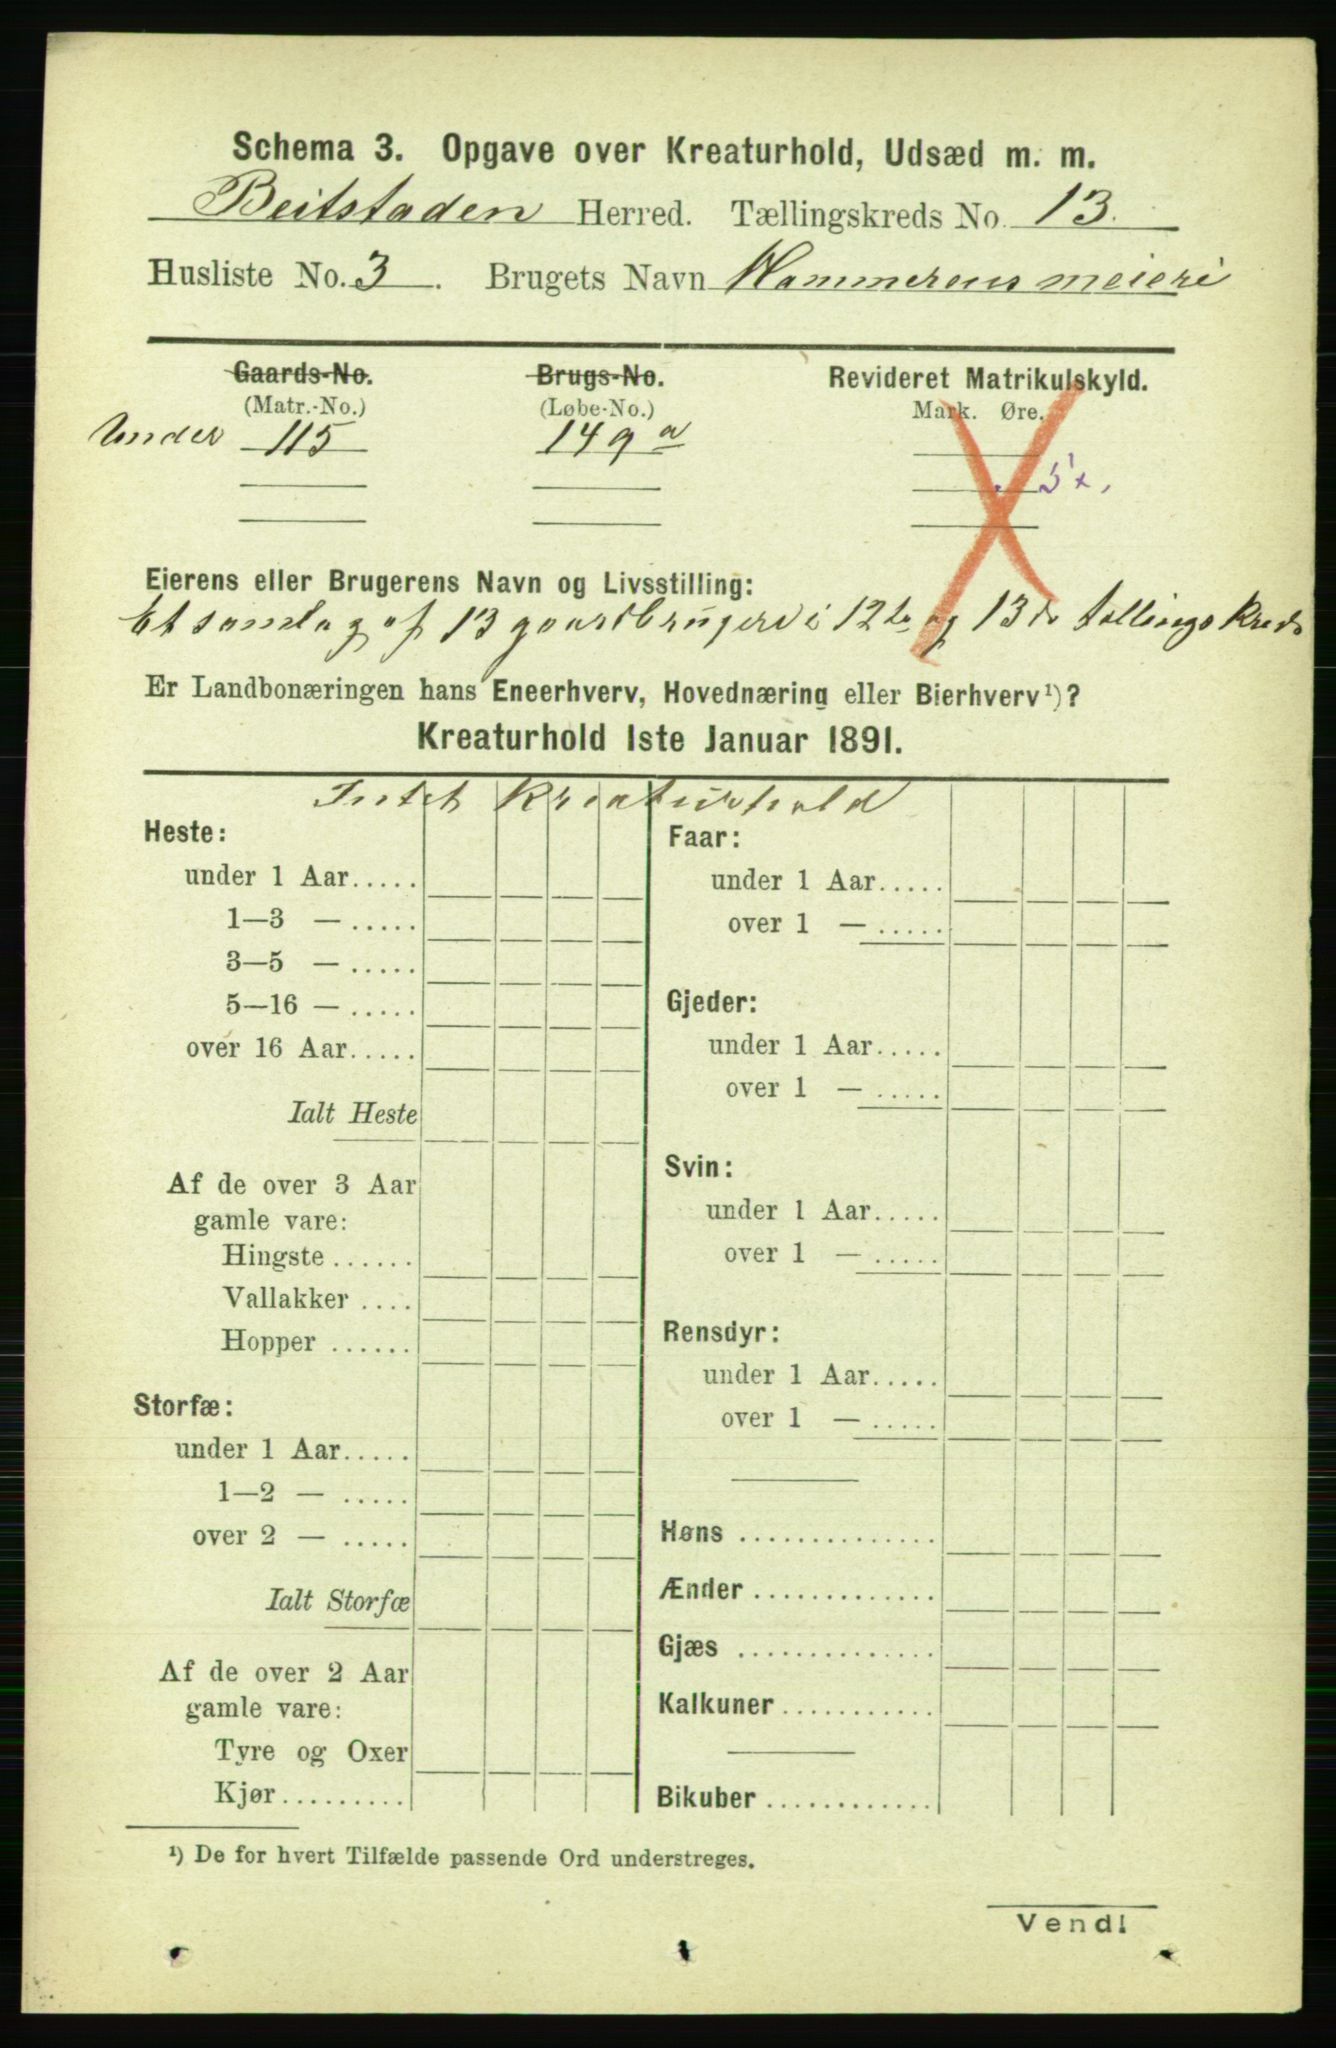 Schema 3. Opgave over Kreaturhold, Udsæd m. m.
Beitstaden Herred. Tællingskreds No. 13.
Husliste No. 3. Brugets Navn Hammerens meieri
Gaards-No. Brugs-No. Revideret Matrikulskyld.
(Matr.-No.) (Løbe-No.) Mark. Øre.
Under 115 149 a
Eierens eller Brugerens Navn og Livsstilling:
Et samlag af 13 gaardbrugere i 12te og 13de tællingskreds
Er Landbonæringen hans Eneerhverv, Hovednæring eller Bierhverv¹)?
Kreaturhold 1ste Januar 1891.
Intet Kreaturhold
Heste:
under 1 Aar.....
1—3 — .....
3—5 — .....
5—16 — .....
over 16 Aar.....
Ialt Heste
Af de over 3 Aar
gamle vare:
Hingste ......
Vallakker ....
Hopper ......
Storfæ:
under 1 Aar.....
1—2 — .....
over 2 — .....
Ialt Storfæ
Af de over 2 Aar
gamle vare:
Tyre og Oxer
Kjør.........
Faar:
under 1 Aar.....
over 1 — .....
Gjeder:
under 1 Aar.....
over 1 — .....
Svin:
under 1 Aar.....
over 1 — .....
Rensdyr:
under 1 Aar.....
over 1 — .....
Høns ..............
Ænder .............
Gjæs ..............
Kalkuner ...........
Bikuber ............
¹) De for hvert Tilfælde passende Ord understreges.
Vend!